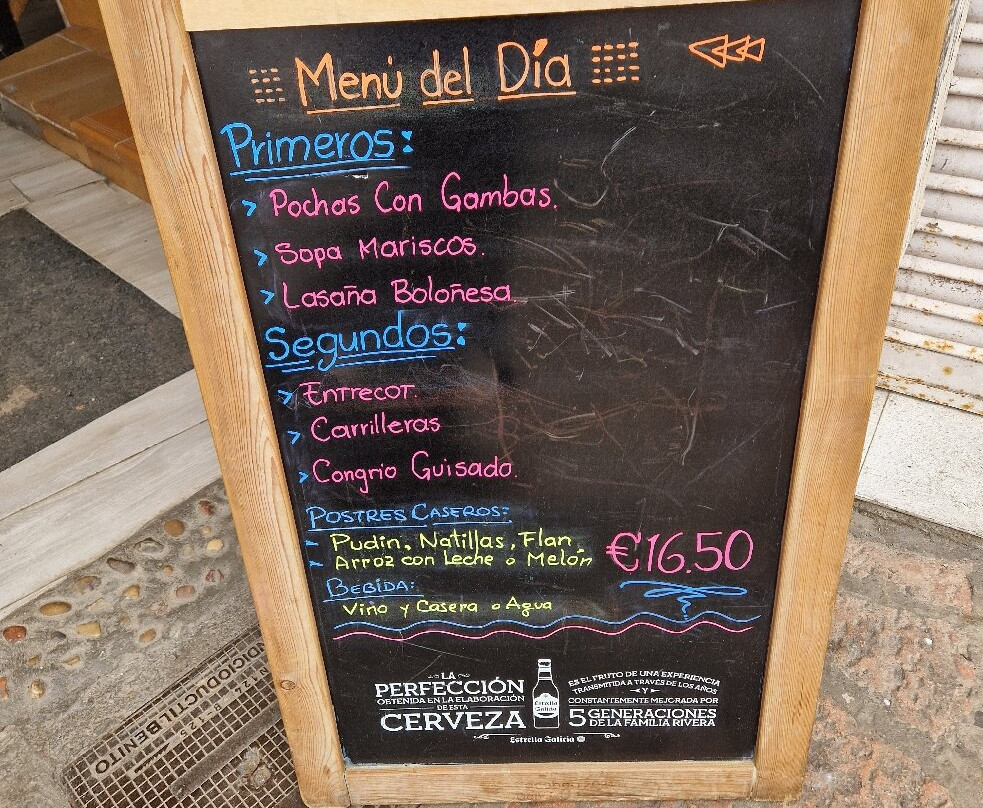 Menú del Día
Primeros:
> Pochas Con Gambas.
> Sopa Mariscos.
> Lasaña Boloñesa.
Segundos:
> Entrecot.
> Carrilleras
> Congrio Guisado.
Postres Caseros:
- Pudin, Natillas, Flan,
- Arroz con Leche o Melón
€16.50
Bebida:
Vino y Casera o Agua
LA
PERFECCIÓN
OBTENIDA EN LA ELABORACIÓN
DE ESTA
CERVEZA
Estrella Galicia
ES EL FRUTO DE UNA EXPERIENCIA
TRANSMITIDA A TRAVÉS DE LOS AÑOS
Y
CONSTANTEMENTE MEJORADA POR
5 GENERACIONES
DE LA FAMILIA RIVERA
Estrella Galicia
BENITO